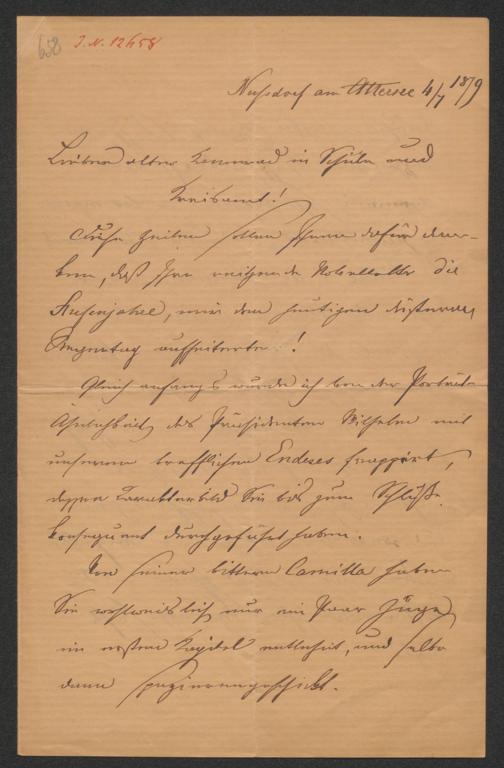 658 J.N. 12658
Nußdorf am Attersee 4/7 1879
Lieber alter Kamerad in Schule und
Kreisamt!
Diese Zeilen sollen Ihnen dafür dan-
ken, daß Ihre reizende Novellette die
Aussenjahre, mir den heutigen düsteren
Regentag aufheiterte!
Gleich anfangs wurde ich von der Porträt-
Ähnlichkeit des Präsidenten Wilhelm mit
unserem trefflichen Enderes frappirt,
dessen Karakterbild Sie bis zum Schluße
konsequent durchgeführt haben.
Von seiner bittern Camilla haben
Sie wohlweislich nur ein Paar Züge
im ersten Kapitel entlehnt, und selbe
dann spazierengeschickt.